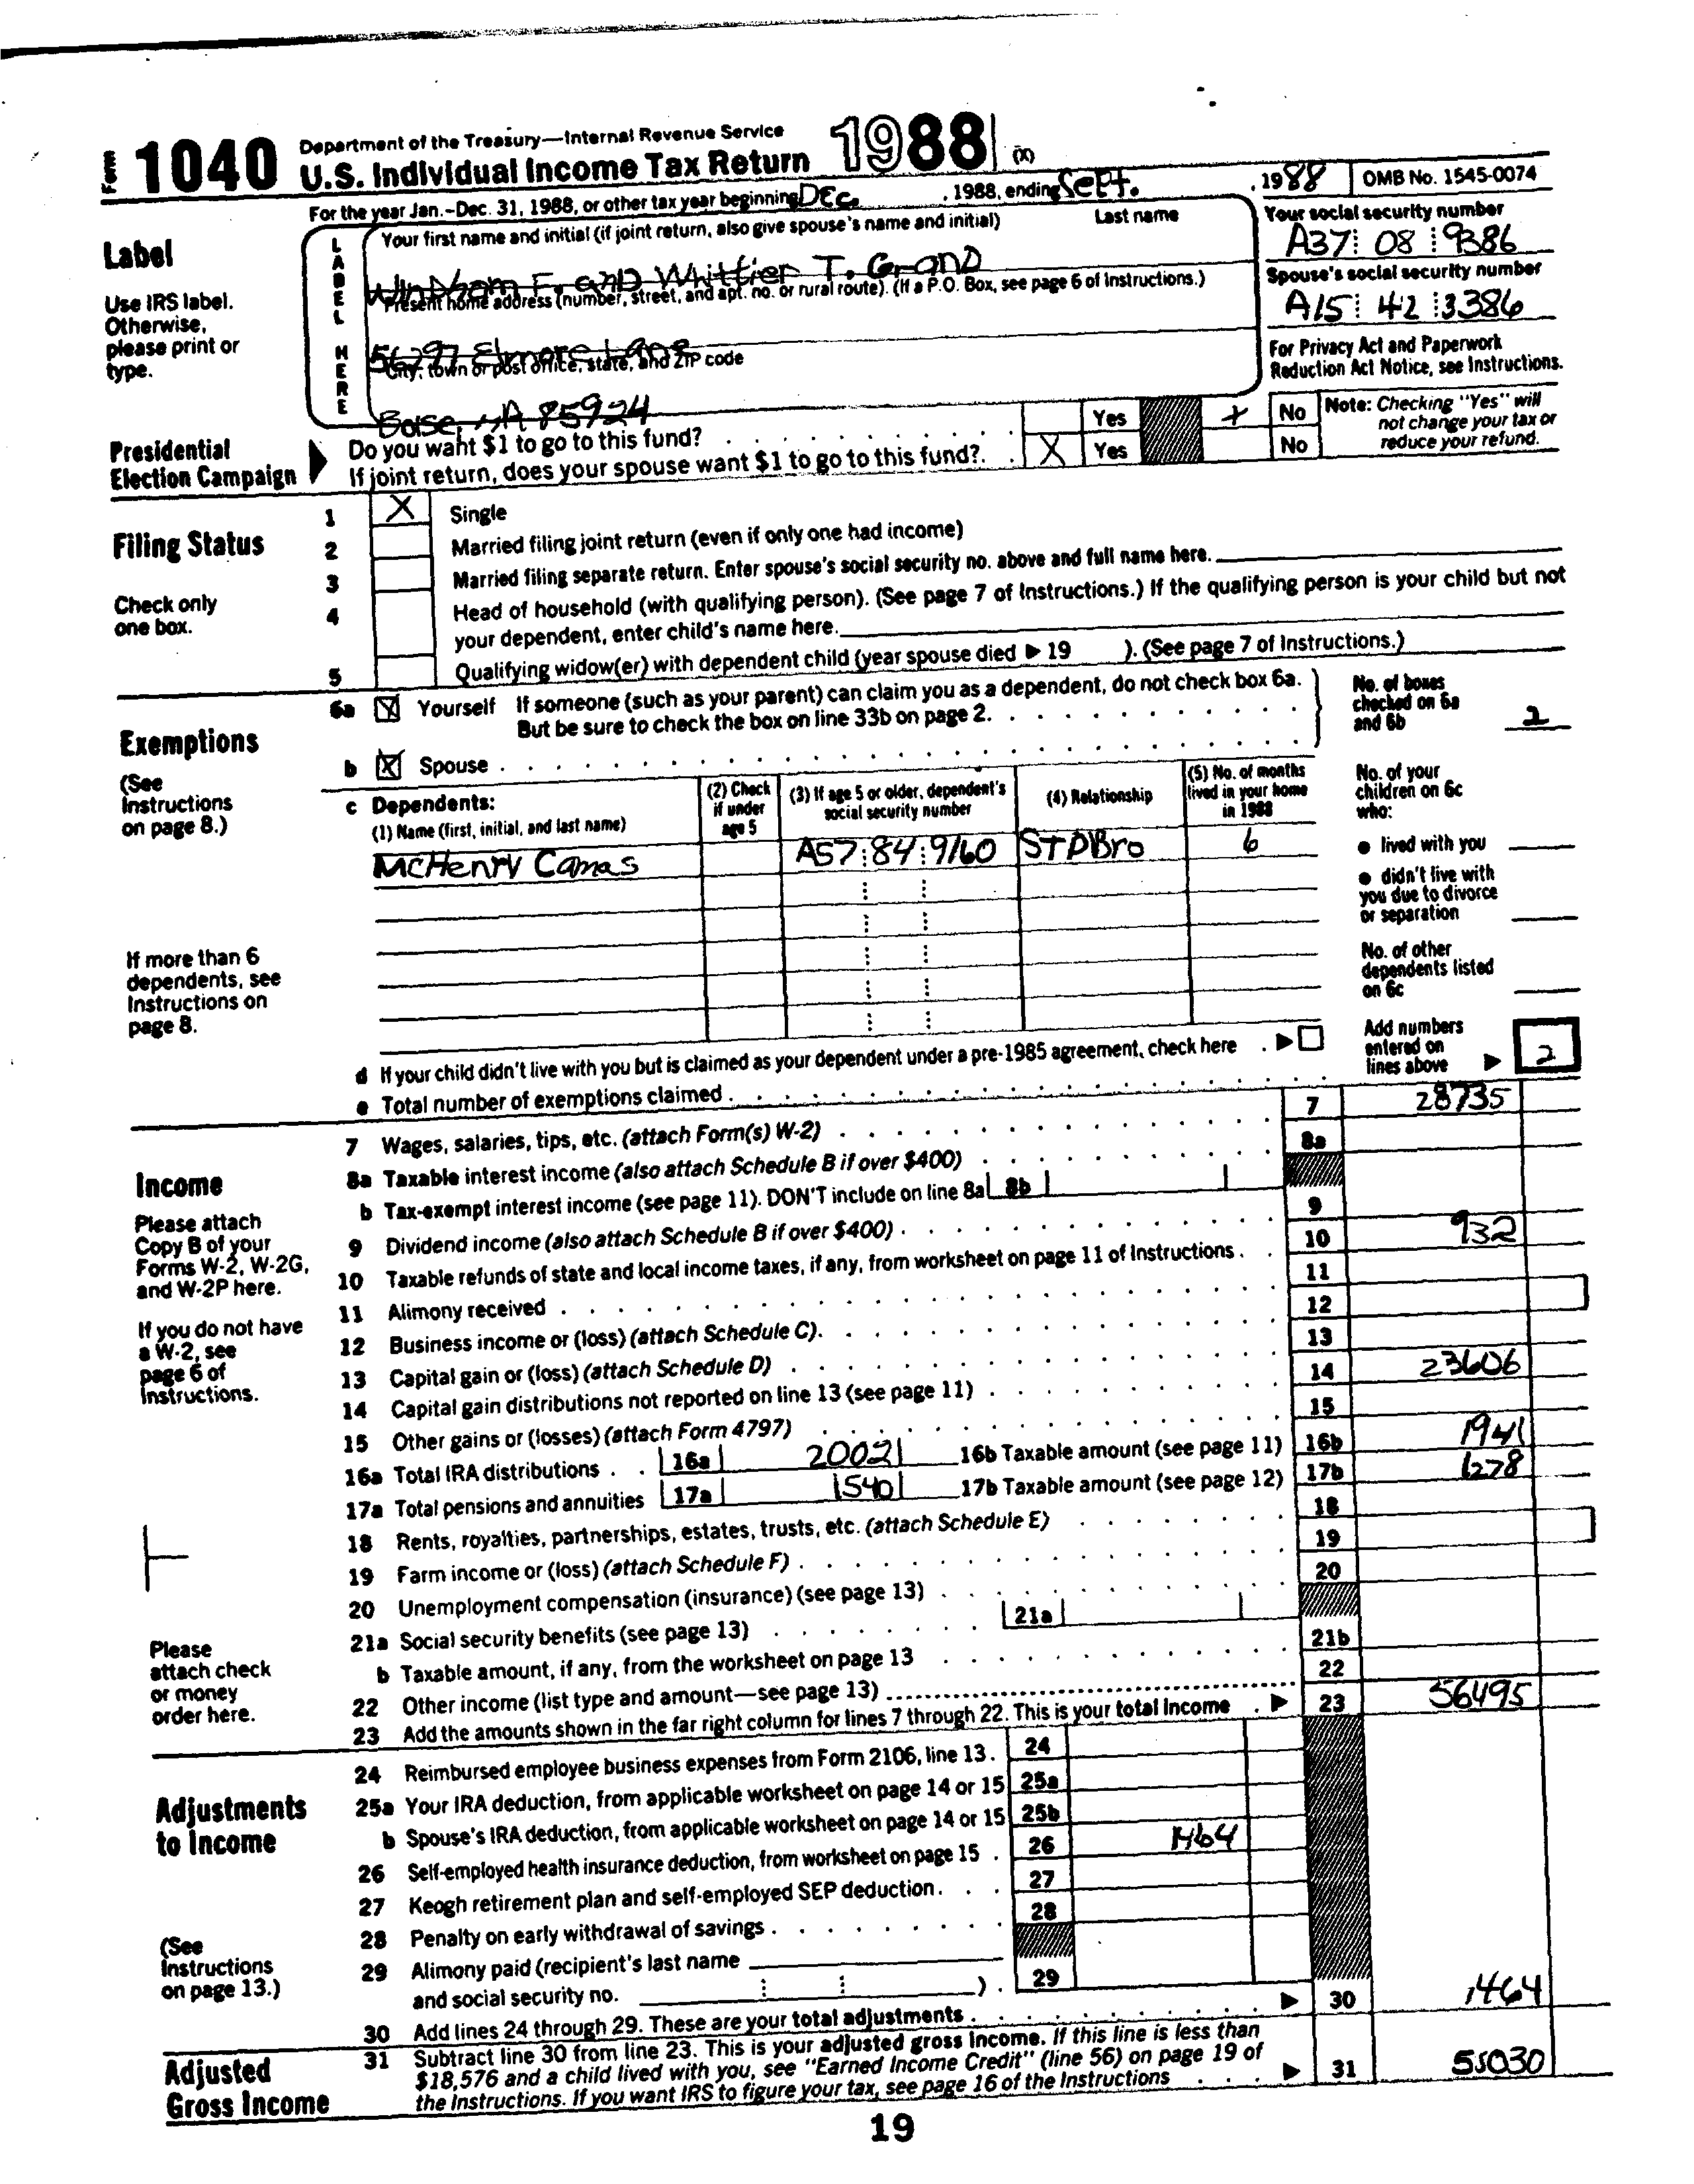 Form 1040 Department of the Treasury—Internal Revenue Service
U.S. Individual Income Tax Return 1988 (X)
For the year Jan.-Dec. 31, 1988, or other tax year beginning Dec. , 1988, ending Sept. , 1988 OMB No. 1545-0074
Label
Use IRS label. Otherwise, please print or type.
LABEL HERE
Your first name and initial (if joint return, also give spouse's name and initial) Last name
Windham F. and Whittier T. Grand
Your social security number
A37 08 9386
Present home address (number, street, and apt. no. or rural route). (If a P.O. Box, see page 6 of Instructions.)
56297 Elmore Lane
Spouse's social security number
A15 42 3386
City, town or post office, state, and ZIP code
Boise, 85924
For Privacy Act and Paperwork Reduction Act Notice, see Instructions.
Presidential Election Campaign
Do you want $1 to go to this fund? Yes X No
If joint return, does your spouse want $1 to go to this fund? X Yes No
Note: Checking "Yes" will not change your tax or reduce your refund.
Filing Status
Check only one box.
1 X Single
2 Married filing joint return (even if only one had income)
3 Married filing separate return. Enter spouse's social security no. above and full name here.
4 Head of household (with qualifying person). (See page 7 of Instructions.) If the qualifying person is your child but not
your dependent, enter child's name here.
5 Qualifying widow(er) with dependent child (year spouse died ▶ 19 ). (See page 7 of Instructions.)
Exemptions
(See Instructions on page 8.)
6a X Yourself If someone (such as your parent) can claim you as a dependent, do not check box 6a.
But be sure to check the box on line 33b on page 2.
b X Spouse
No. of boxes checked on 6a and 6b 2
c Dependents:
(1) Name (first, initial, and last name)
(2) Check if under age 5
(3) If age 5 or older, dependent's social security number
(4) Relationship
(5) No. of months lived in your home in 1988
McHenry Camas A57 84 9160 STPBro 6
No. of your children on 6c who:
● lived with you
● didn't live with you due to divorce or separation
No. of other dependents listed on 6c
If more than 6 dependents, see Instructions on page 8.
d If your child didn't live with you but is claimed as your dependent under a pre-1985 agreement, check here ▶
e Total number of exemptions claimed
Add numbers entered on lines above ▶ 2
Income
Please attach Copy B of your Forms W-2, W-2G, and W-2P here.
If you do not have a W-2, see page 6 of Instructions.
Please attach check or money order here.
7 Wages, salaries, tips, etc. (attach Form(s) W-2) 7 28735
8a Taxable interest income (also attach Schedule B if over $400) 8a
b Tax-exempt interest income (see page 11). DON'T include on line 8a 8b
9 Dividend income (also attach Schedule B if over $400) 9
10 Taxable refunds of state and local income taxes, if any, from worksheet on page 11 of Instructions 10 932
11 Alimony received 11
12 Business income or (loss) (attach Schedule C) 12
13 Capital gain or (loss) (attach Schedule D) 13
14 Capital gain distributions not reported on line 13 (see page 11) 14 23606
15 Other gains or (losses) (attach Form 4797) 15
16a Total IRA distributions 16a 2002 16b Taxable amount (see page 11) 16b 1941
17a Total pensions and annuities 17a 1540 17b Taxable amount (see page 12) 17b 1278
18 Rents, royalties, partnerships, estates, trusts, etc. (attach Schedule E) 18
19 Farm income or (loss) (attach Schedule F) 19
20 Unemployment compensation (insurance) (see page 13) 20
21a Social security benefits (see page 13) 21a
b Taxable amount, if any, from the worksheet on page 13 21b
22 Other income (list type and amount—see page 13) 22
23 Add the amounts shown in the far right column for lines 7 through 22. This is your total income ▶ 23 56495
Adjustments to Income
(See Instructions on page 13.)
24 Reimbursed employee business expenses from Form 2106, line 13. 24
25a Your IRA deduction, from applicable worksheet on page 14 or 15 25a
b Spouse's IRA deduction, from applicable worksheet on page 14 or 15 25b
26 Self-employed health insurance deduction, from worksheet on page 15 26 1464
27 Keogh retirement plan and self-employed SEP deduction 27
28 Penalty on early withdrawal of savings 28
29 Alimony paid (recipient's last name
and social security no. ) 29
30 Add lines 24 through 29. These are your total adjustments ▶ 30 1464
Adjusted Gross Income
31 Subtract line 30 from line 23. This is your adjusted gross income. If this line is less than
$18,576 and a child lived with you, see "Earned Income Credit" (line 56) on page 19 of
the Instructions. If you want IRS to figure your tax, see page 16 of the Instructions ▶ 31 55030
19